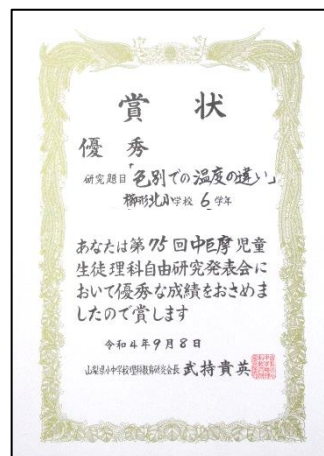 賞状
優秀
研究題目「色別での温度の違い」
櫛形北小学校 6学年
あなたは第75回中巨摩児童
生徒理科自由研究発表会に
おいて優秀な成績をおさめま
したので賞します
令和4年9月8日
山梨県小中学校理科教育研究会長 武持貴英